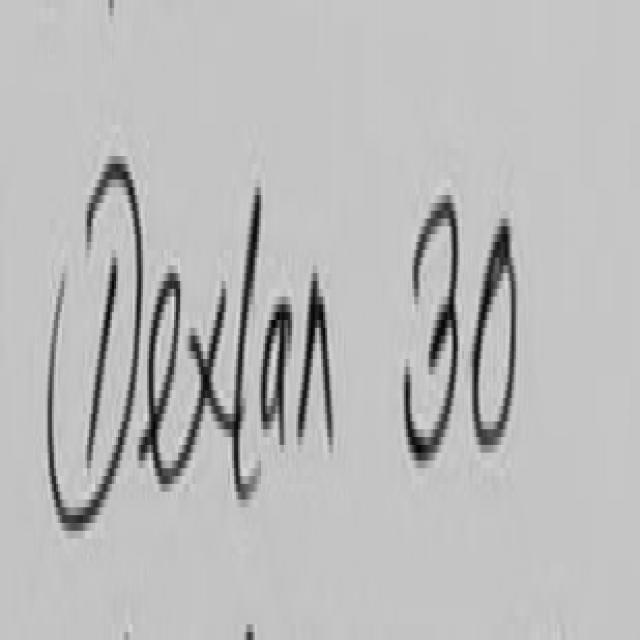 Dexlan 30